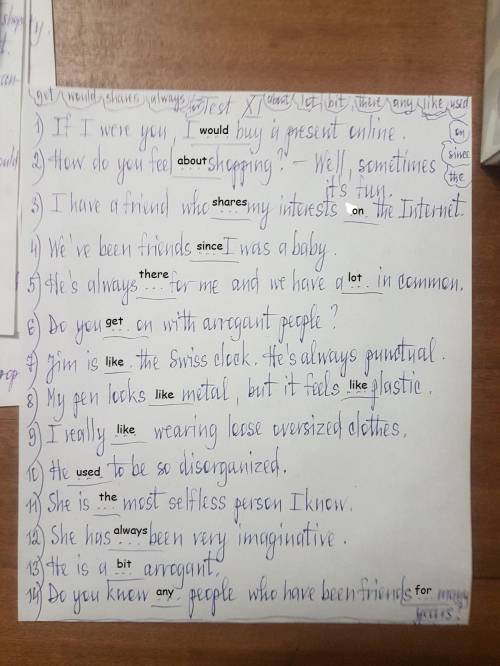 get would shares always for Test XI about lot bit there any like used
on
since
the
1) If I were you, I would buy a present online.
2) How do you feel about shopping? – Well, sometimes
it's fun.
3) I have a friend who shares my interests on the Internet.
4) We've been friends since I was a baby.
5) He's always there for me and we have a lot in common.
6) Do you get on with arrogant people?
7) Jim is like the Swiss clock. He's always punctual.
8) My pen looks like metal, but it feels like plastic.
9) I really like wearing loose oversized clothes.
10) He used to be so disorganized.
11) She is the most selfless person I know.
12) She has always been very imaginative.
13) He is a bit arrogant.
14) Do you know any people who have been friends for many
years?